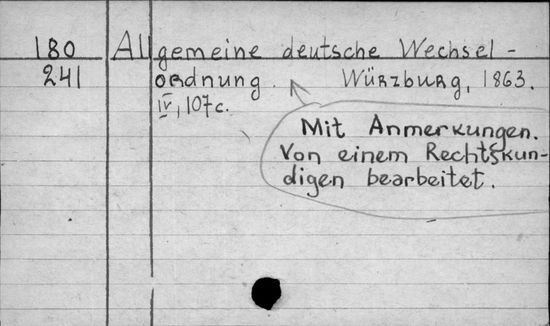 180 Allgemeine deutsche Wechsel-
241 ordnung. Würzburg, 1863.
IV, 107 c.
Mit Anmerkungen.
Von einem Rechtskun-
digen bearbeitet.